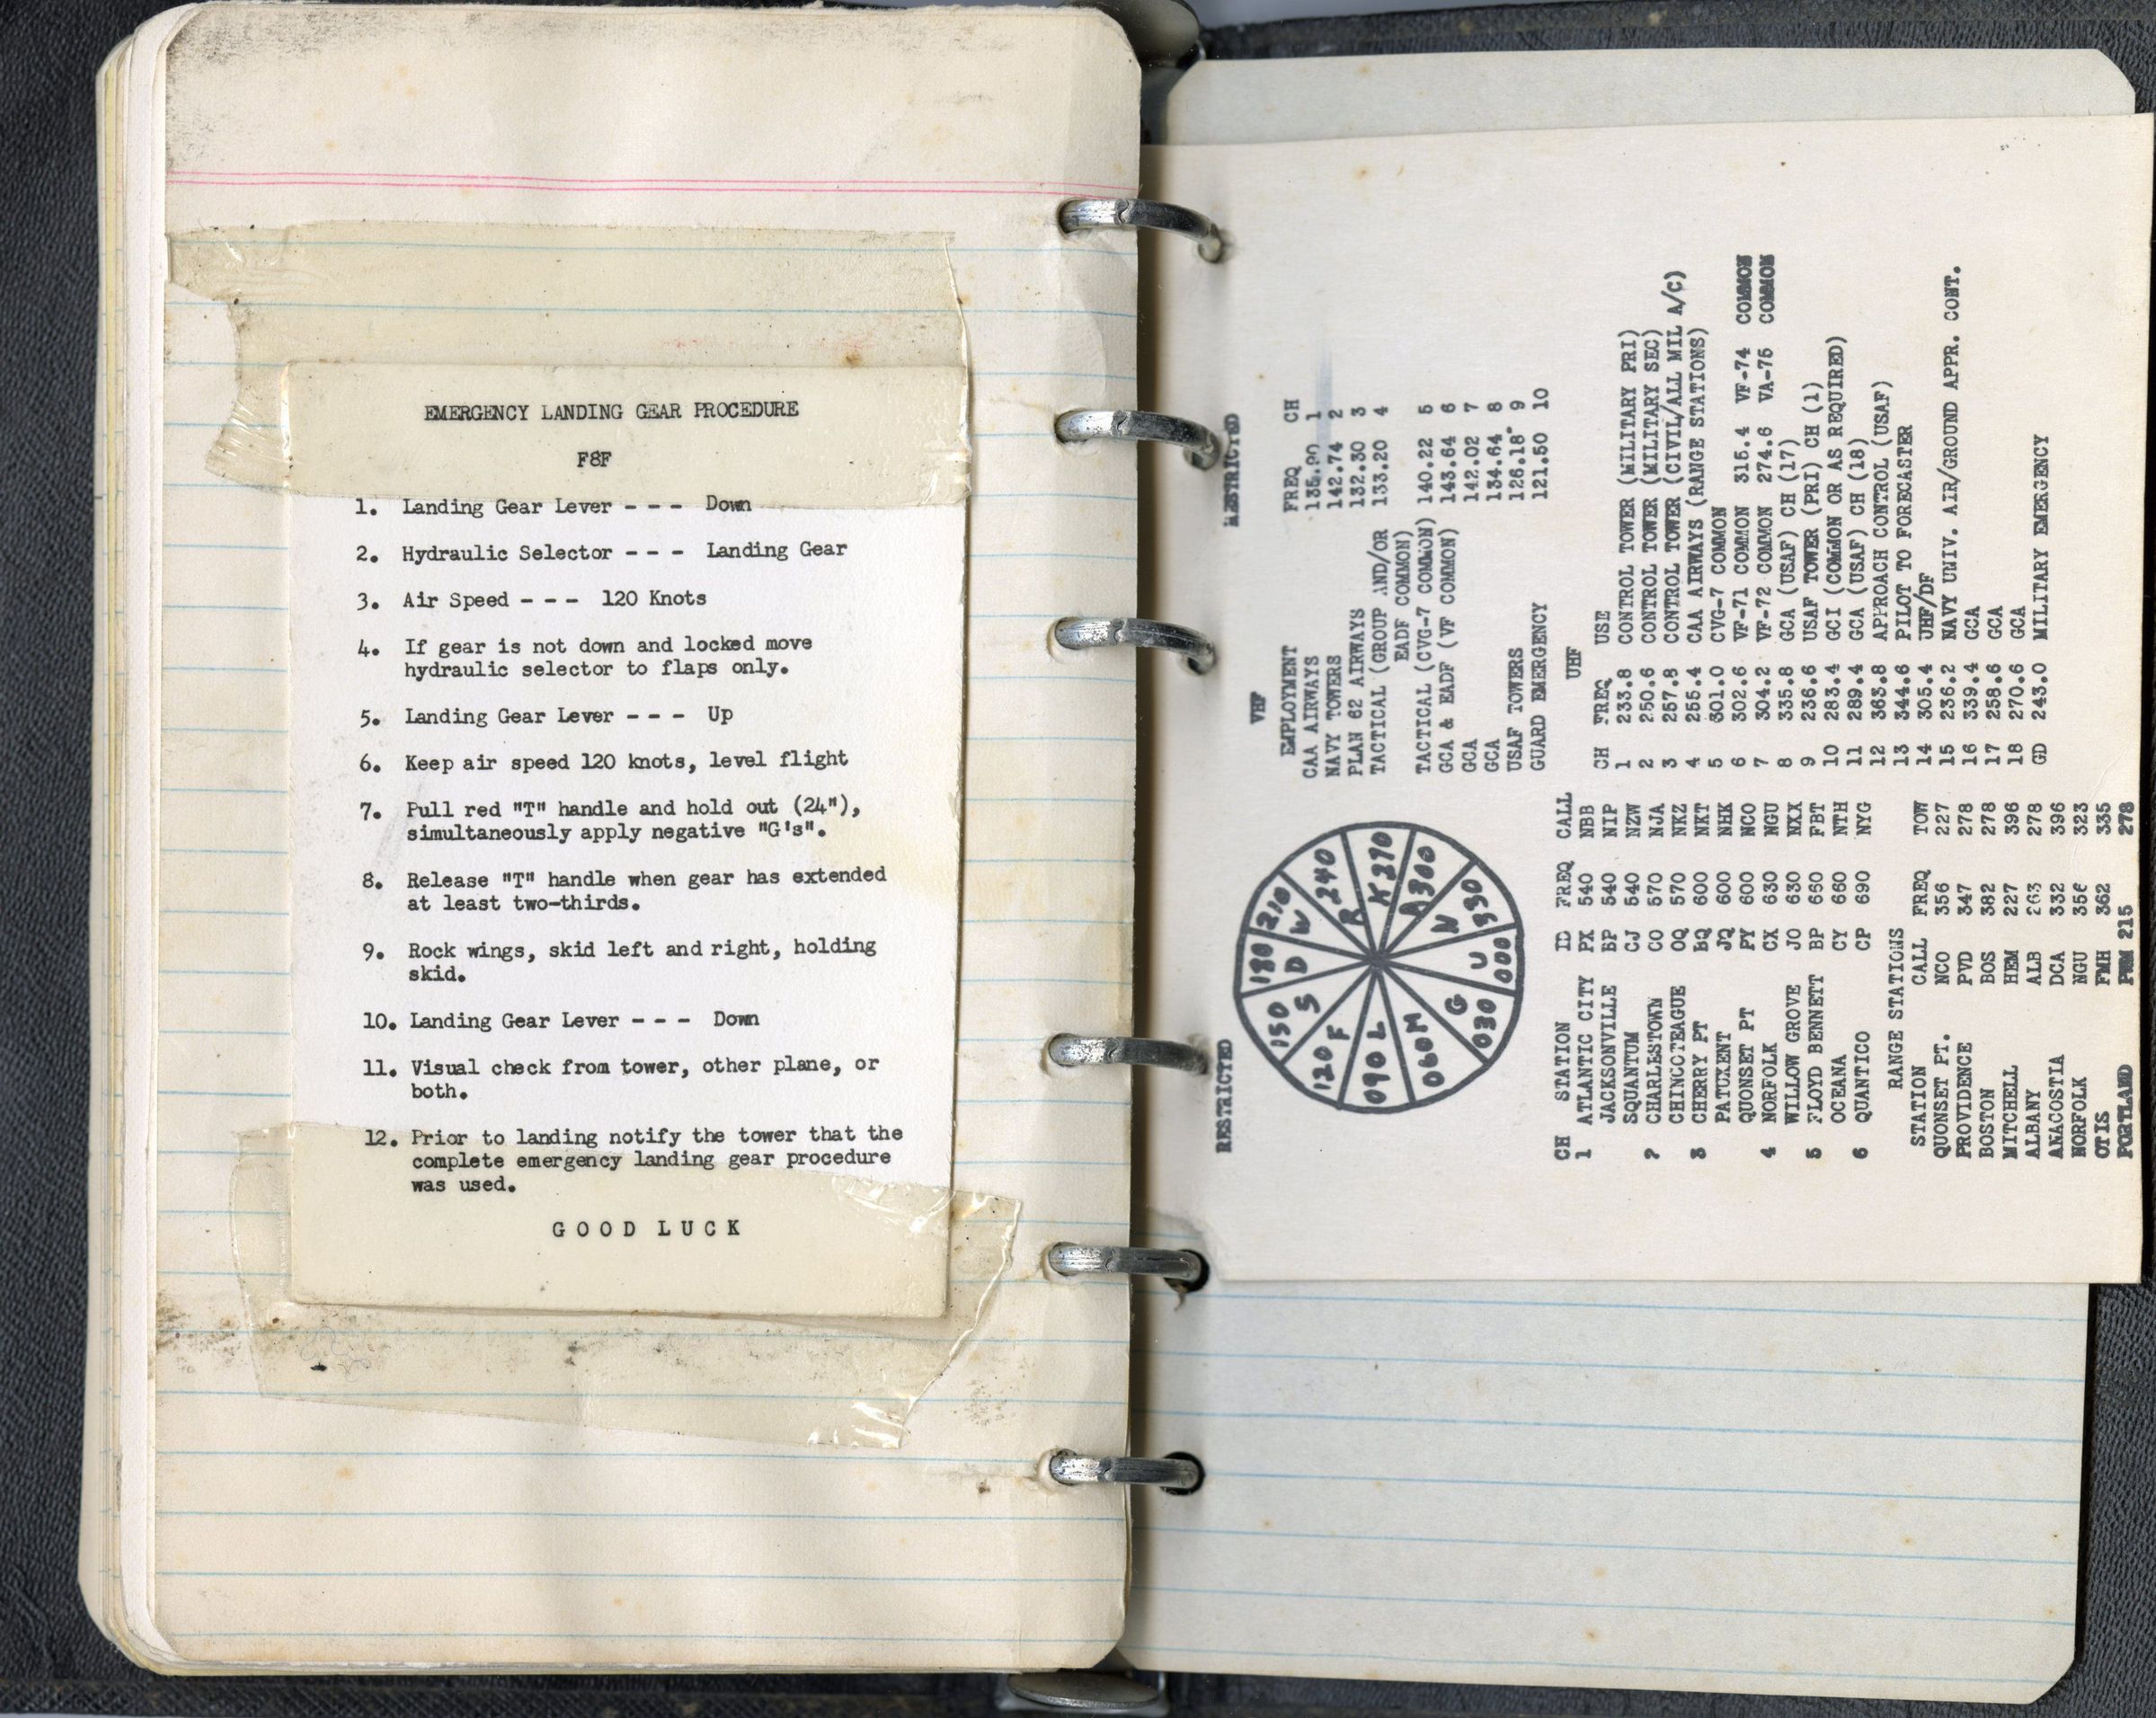 EMERGENCY LANDING GEAR PROCEDURE
F8F
1. Landing Gear Lever - - - Down
2. Hydraulic Selector - - - Landing Gear
3. Air Speed - - - 120 Knots
4. If gear is not down and locked move
hydraulic selector to flaps only.
5. Landing Gear Lever - - - Up
6. Keep air speed 120 knots, level flight
7. Pull red "T" handle and hold out (24"),
simultaneously apply negative "G's".
8. Release "T" handle when gear has extended
at least two-thirds.
9. Rock wings, skid left and right, holding
skid.
10. Landing Gear Lever - - - Down
11. Visual check from tower, other plane, or
both.
12. Prior to landing notify the tower that the
complete emergency landing gear procedure
was used.
GOOD LUCK
RESTRICTED
150 S
180 D
210 W
240 R
270 K
300 A
330 N
000 U
030 G
060 M
090 L
120 F
CH STATION ID FREQ CALL
1 ATLANTIC CITY PX 540 NBB
JACKSONVILLE BP 540 NIP
SQUANTUM CJ 540 NZW
2 CHARLESTOWN CO 570 NJA
CHINCOTEAGUE OQ 570 NKZ
3 CHERRY PT BQ 600 NKT
PATUXENT JQ 600 NHK
QUONSET PT PY 600 NCO
4 NORFOLK CX 630 NGU
WILLOW GROVE JO 630 NXX
5 FLOYD BENNETT BP 660 FBT
OCEANA CY 660 NTH
6 QUANTICO CP 690 NYG
RANGE STATIONS
STATION CALL FREQ TOW
QUONSET PT. NCO 356 227
PROVIDENCE PVD 347 278
BOSTON BOS 382 278
MITCHELL HEM 227 396
ALBANY ALB 278
ANACOSTIA DCA 332 396
NORFOLK NGU 323
OTIS FMH 362 335
PORTLAND PWM 215 278
RESTRICTED
VHF
EMPLOYMENT FREQ CH
CAA AIRWAYS 1
NAVY TOWERS 142.74 2
PLAN 62 AIRWAYS 132.30 3
TACTICAL (GROUP AND/OR 133.20 4
EADF COMMON)
TACTICAL (CVG-7 COMMON) 140.22 5
GCA & EADF (VF COMMON) 143.64 6
GCA 142.02 7
GCA 134.64 8
USAF TOWERS 126.18 9
GUARD EMERGENCY 121.50 10
UHF
CH FREQ USE
1 233.8 CONTROL TOWER (MILITARY PRI)
2 250.6 CONTROL TOWER (MILITARY SEC)
3 257.8 CONTROL TOWER (CIVIL/ALL MIL A/C)
4 255.4 CAA AIRWAYS (RANGE STATIONS)
5 301.0 CVG-7 COMMON
6 302.6 VF-71 COMMON 315.4 VF-74 COMMON
7 304.2 VF-72 COMMON 274.6 VA-75 COMMON
8 335.8 GCA (USAF) CH (17)
9 236.6 USAF TOWER (PRI) CH (1)
10 283.4 GCI (COMMON OR AS REQUIRED)
11 289.4 GCA (USAF) CH (18)
12 363.8 APPROACH CONTROL (USAF)
13 344.6 PILOT TO FORECASTER
14 305.4 UHF/DF
15 236.2 NAVY UNIV. AIR/GROUND APPR. CONT.
16 339.4 GCA
17 258.6 GCA
18 270.6 GCA
GD 243.0 MILITARY EMERGENCY